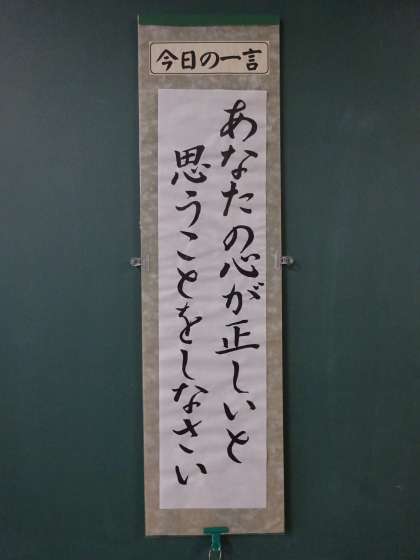 今日の一言
あなたの心が正しいと
思うことをしなさい